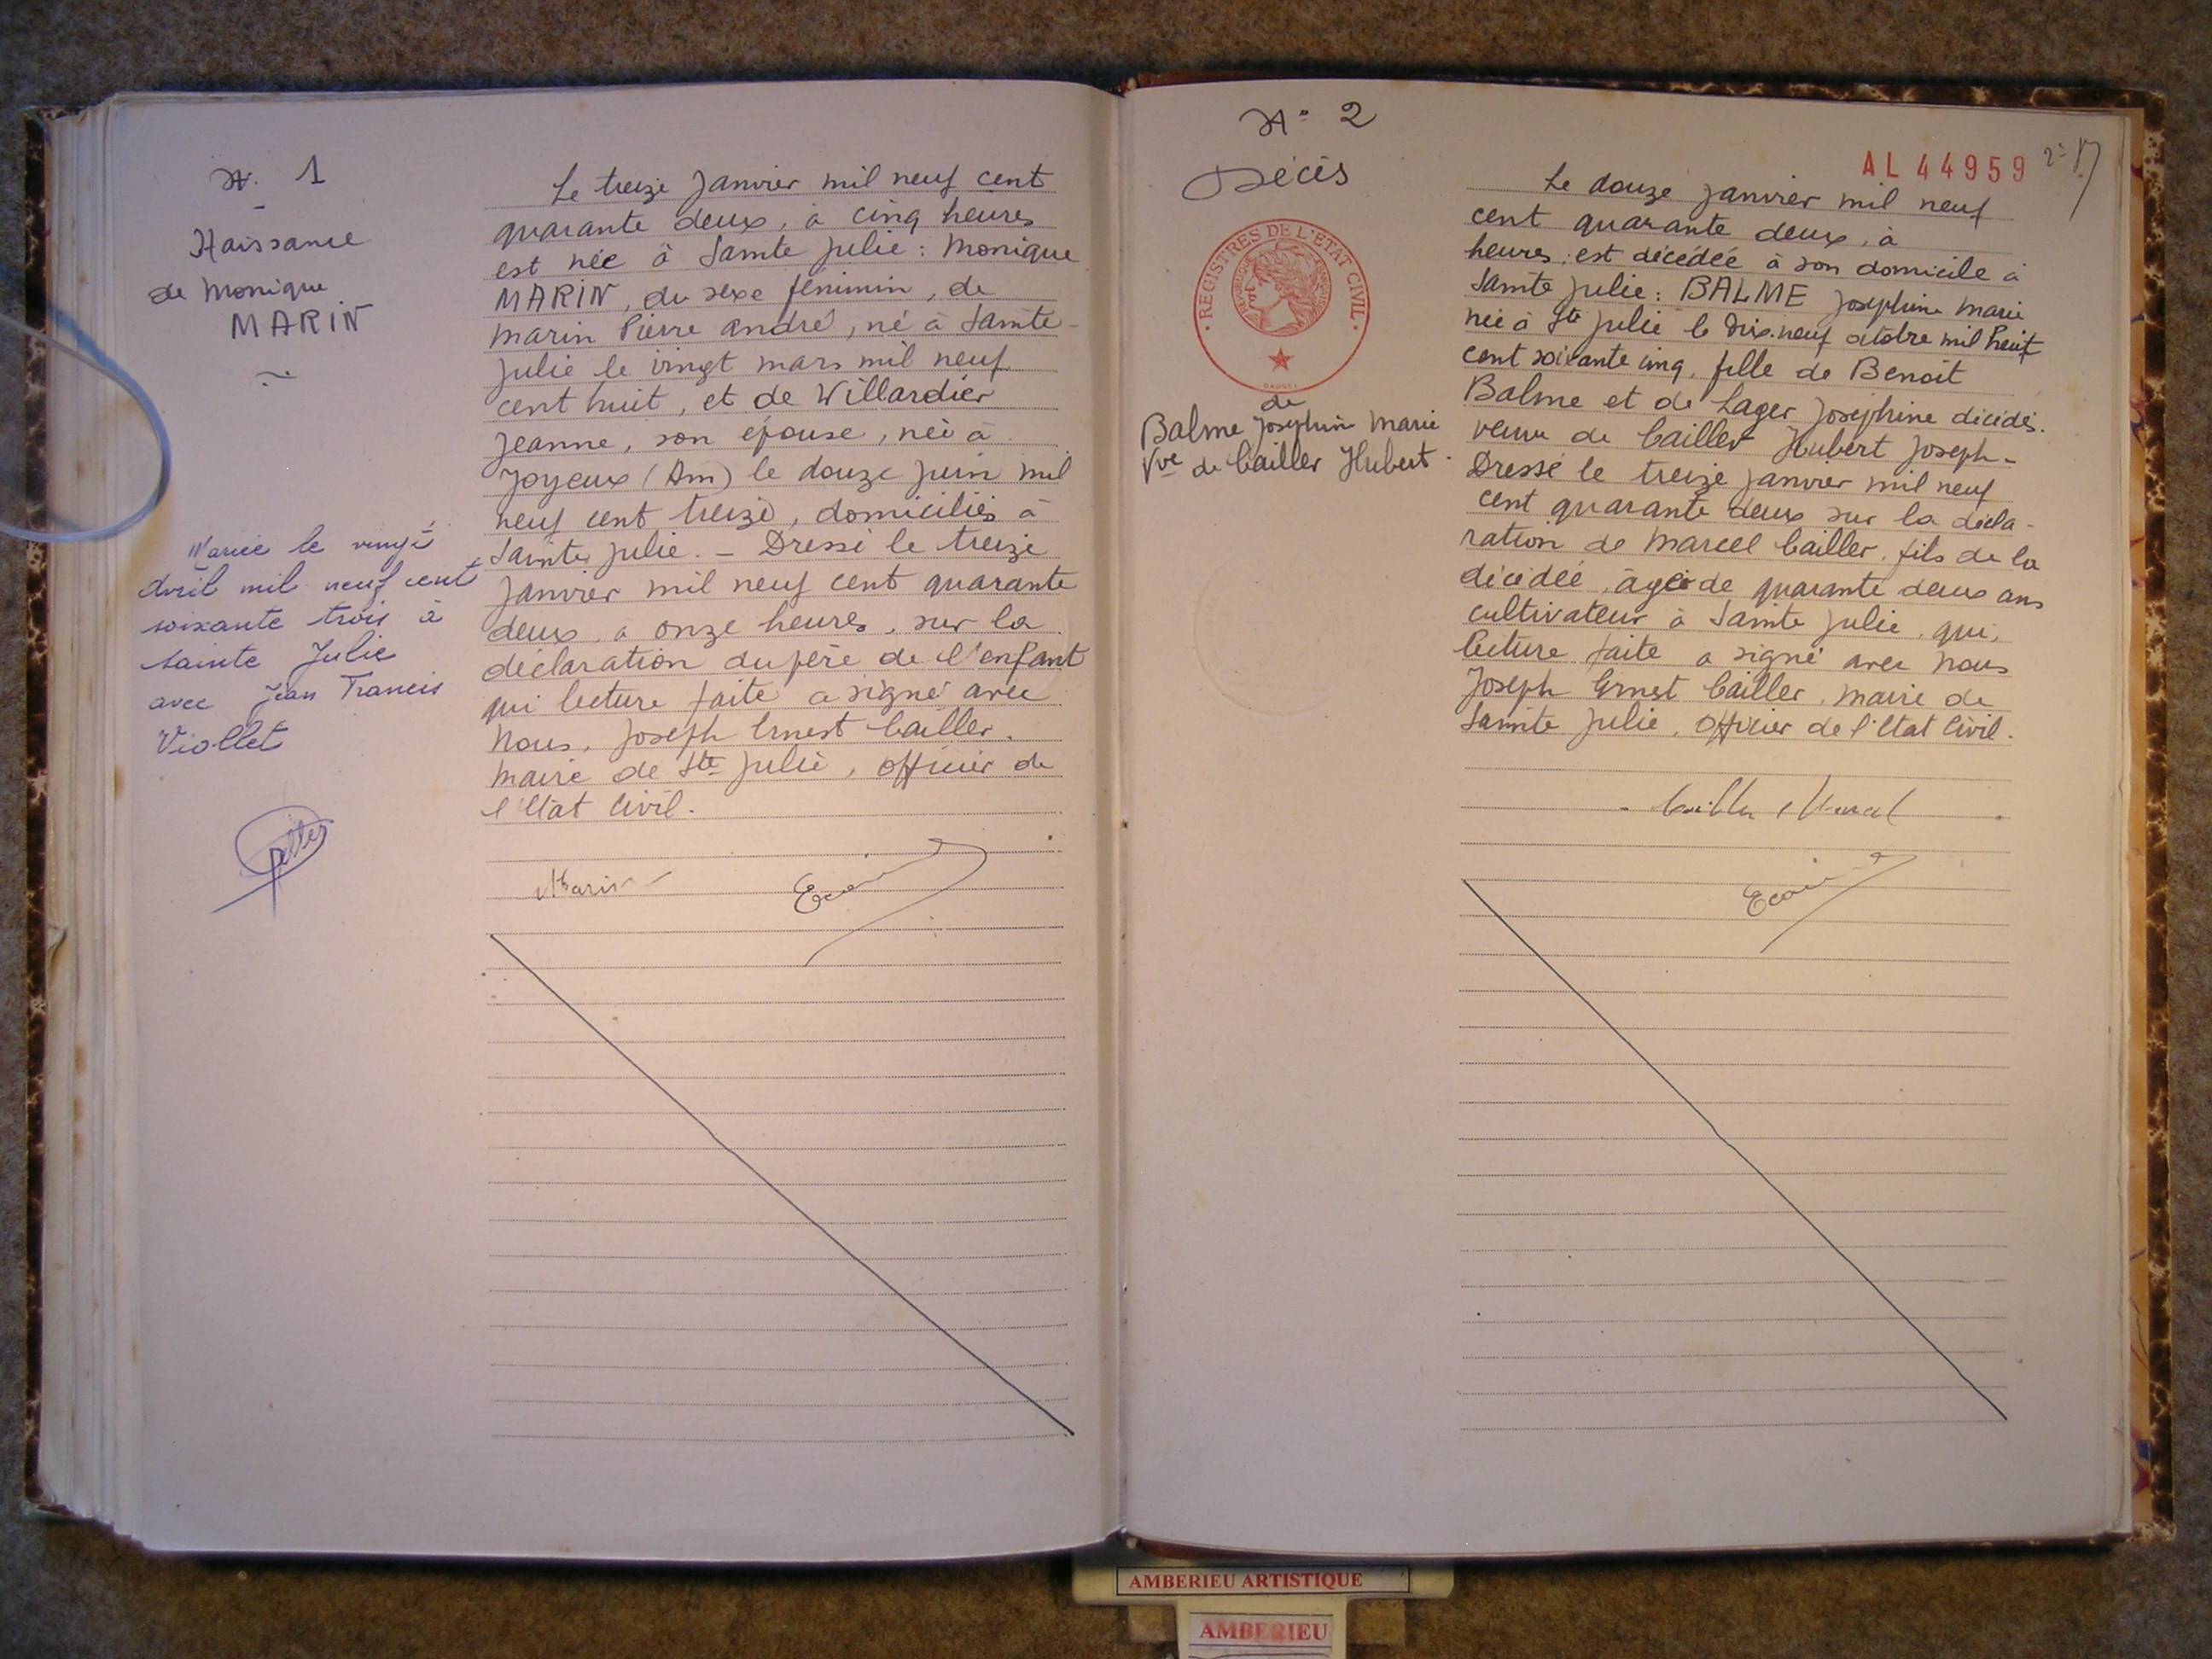 N. 1
Naissance
de Monique
MARIN
Mariée le vingt
Avril mil neuf cent
soixante trois à
Sainte Julie
avec Jean Francis
Viollet
Le treize Janvier mil neuf cent
quarante deux, à cinq heures
est née à Sainte Julie : Monique
MARIN, du sexe féminin, de
Marin Pierre André, né à Sainte
Julie le vingt mars mil neuf
cent huit, et de Willardier
Jeanne, son épouse, née à
Joyeux (Ain) le douze juin mil
neuf cent treize, domiciliés à
Sainte Julie. - Dressé le treize
Janvier mil neuf cent quarante
deux, à onze heures, sur la
déclaration du père de l'enfant
qui lecture faite a signé avec
Nous, Joseph Ernest Cailler,
Maire de Ste Julie, officier de
l'Etat Civil.
Marin
N° 2
Décès
REGISTRES DE L'ETAT CIVIL
de
Balme Joséphine Marie
Vve de Cailler Hubert.
AL 44959
Le douze Janvier mil neuf
cent quarante deux, à
heures, est décédée à son domicile à
Sainte Julie : BALME Joséphine Marie
née à Ste Julie le Dix-neuf octobre mil huit
cent soixante cinq, fille de Benoit
Balme et de Lager Joséphine décédés.
veuve de Cailler Hubert Joseph -
Dressé le treize Janvier mil neuf
cent quarante deux sur la décla-
ration de Marcel Cailler, fils de la
décédée, âgé de quarante deux ans
cultivateur à Sainte Julie, qui,
lecture faite a signé avec Nous
Joseph Ernest Cailler, Maire de
Sainte Julie, Officier de l'Etat Civil.
Cailler Marcel
AMBERIEU ARTISTIQUE
AMBERIEU